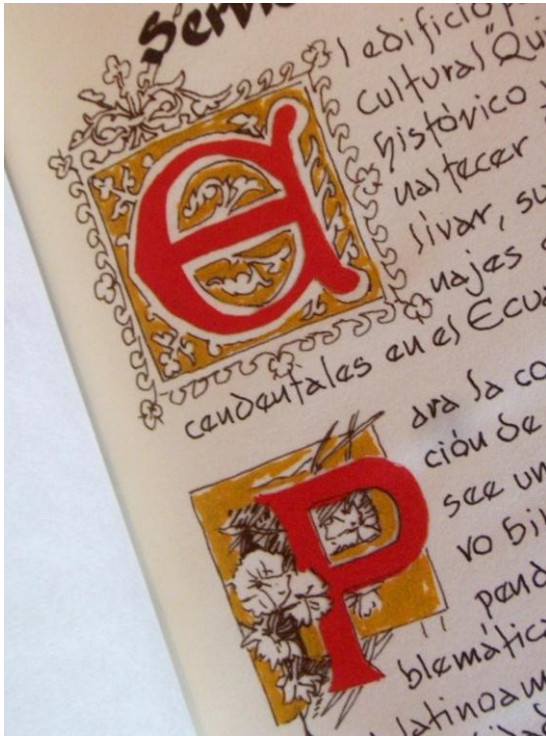 Servic
El edificio p
cultural "Qui
histórico
nastecer
livar, su
najes
cendentales en el Ecua
Para la co
ción de
see un
vo bil
pend
blemática
latinoam